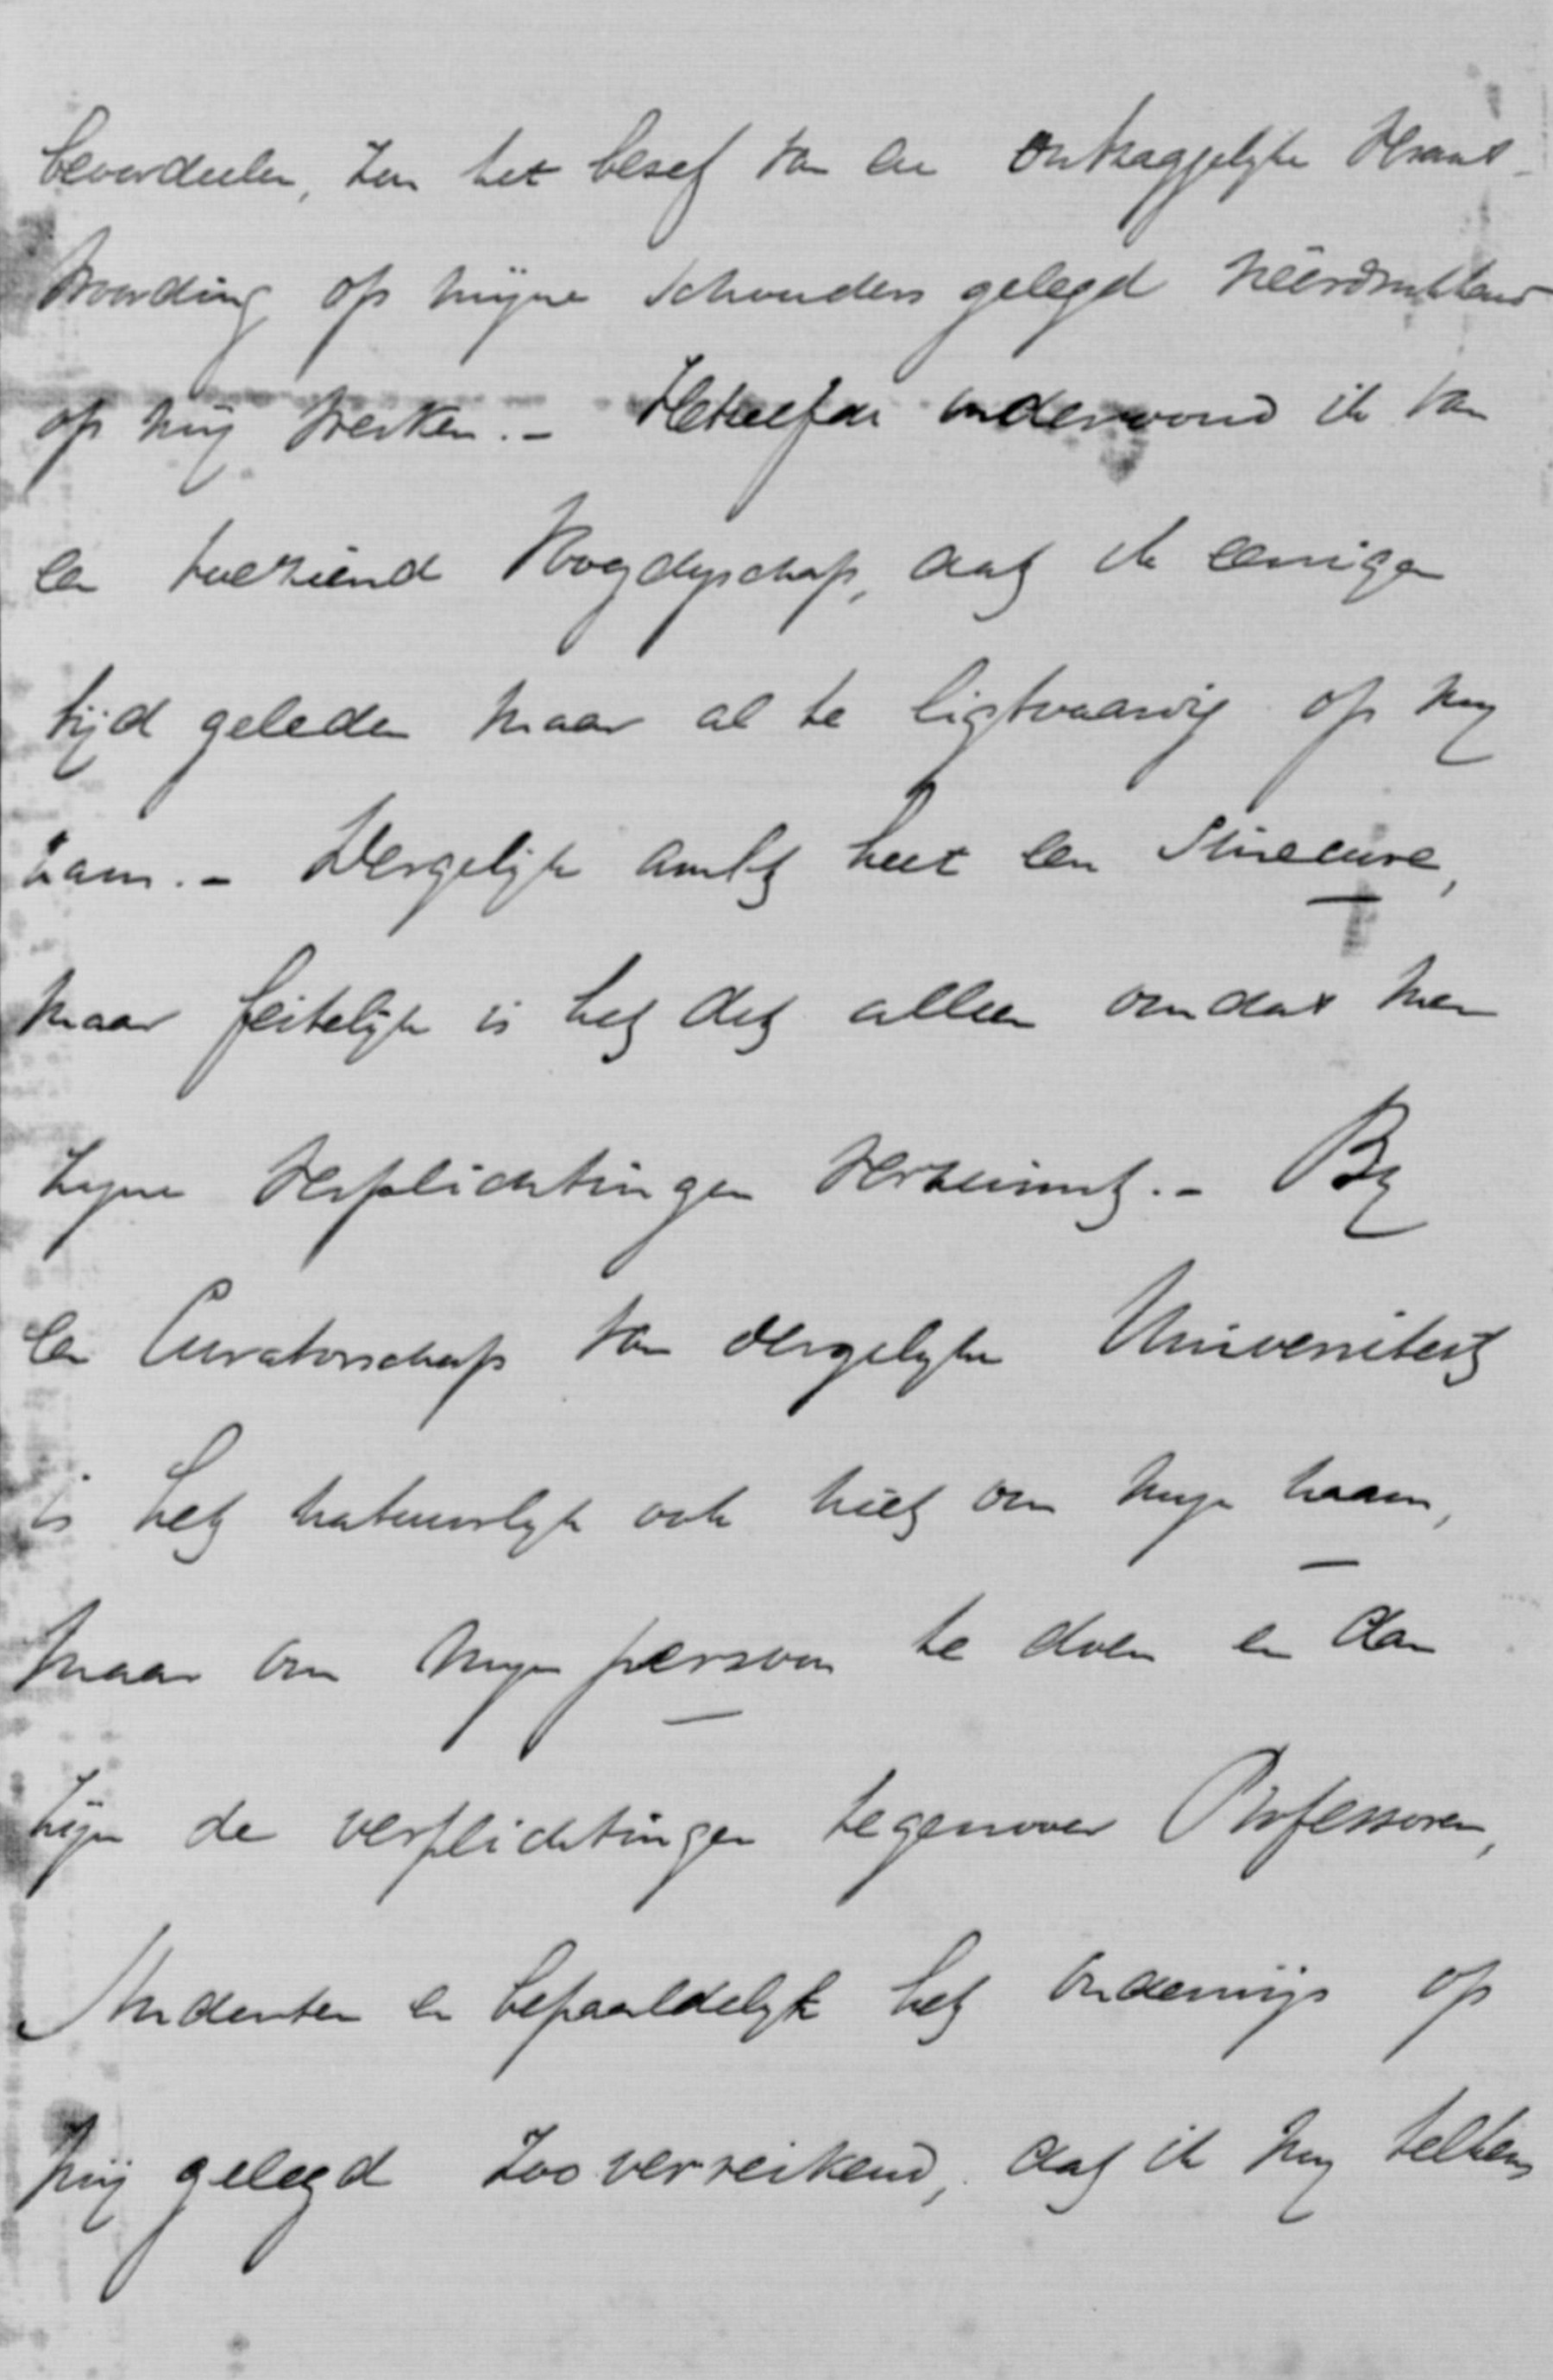 beoordeelen, zou het besef van die ontzaggelyke verant-
woording op myne schouders gelegd neêrdrukkend
op mij werken. - Hetzelfde ondervond ik van
een toeziend Voogdyschap, dat ik eenigen
tijd geleden maar al te ligtvaardig op my
nam. - Dergelijk ambt heet een Sinecure,
maar feitelijk is het dit alleen omdat men
zyne verplichtingen verzuimt. - By
een Curatorschap van dergelyke Universiteit
is het natuurlyk ook niet om myn naam,
maar om myn persoon te doen en dan
zijn de verplichtingen tegenover Professoren,
Studenten en bepaaldelyk het onderwijs op
mij gelegd zoo verreikend, dat ik my telkens